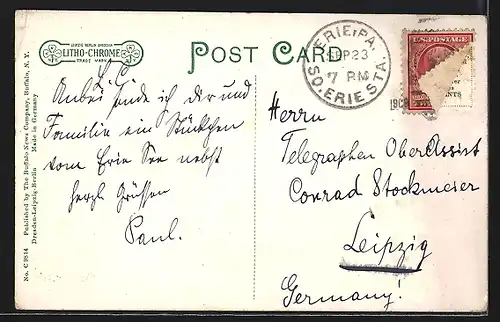 LEIPZIG BERLIN DRESDEN
LITHO-CHROME
TRADE MARK
POST CARD
ERIE, PA.
SEP 23
7 PM
SO. ERIE STA.
U.S. POSTAGE
No. C 9814 Published by The Buffalo News Company, Buffalo, N. Y.
Dresden-Leipzig-Berlin Made in Germany
L. C.
Anbei sende ich dir und
Familie ein Stückchen
vom Erie See nebst
herzl Grüssen
Paul.
Herrn
Telegraphen OberAssist
Conrad Stockmeier
Leipzig
Germany!